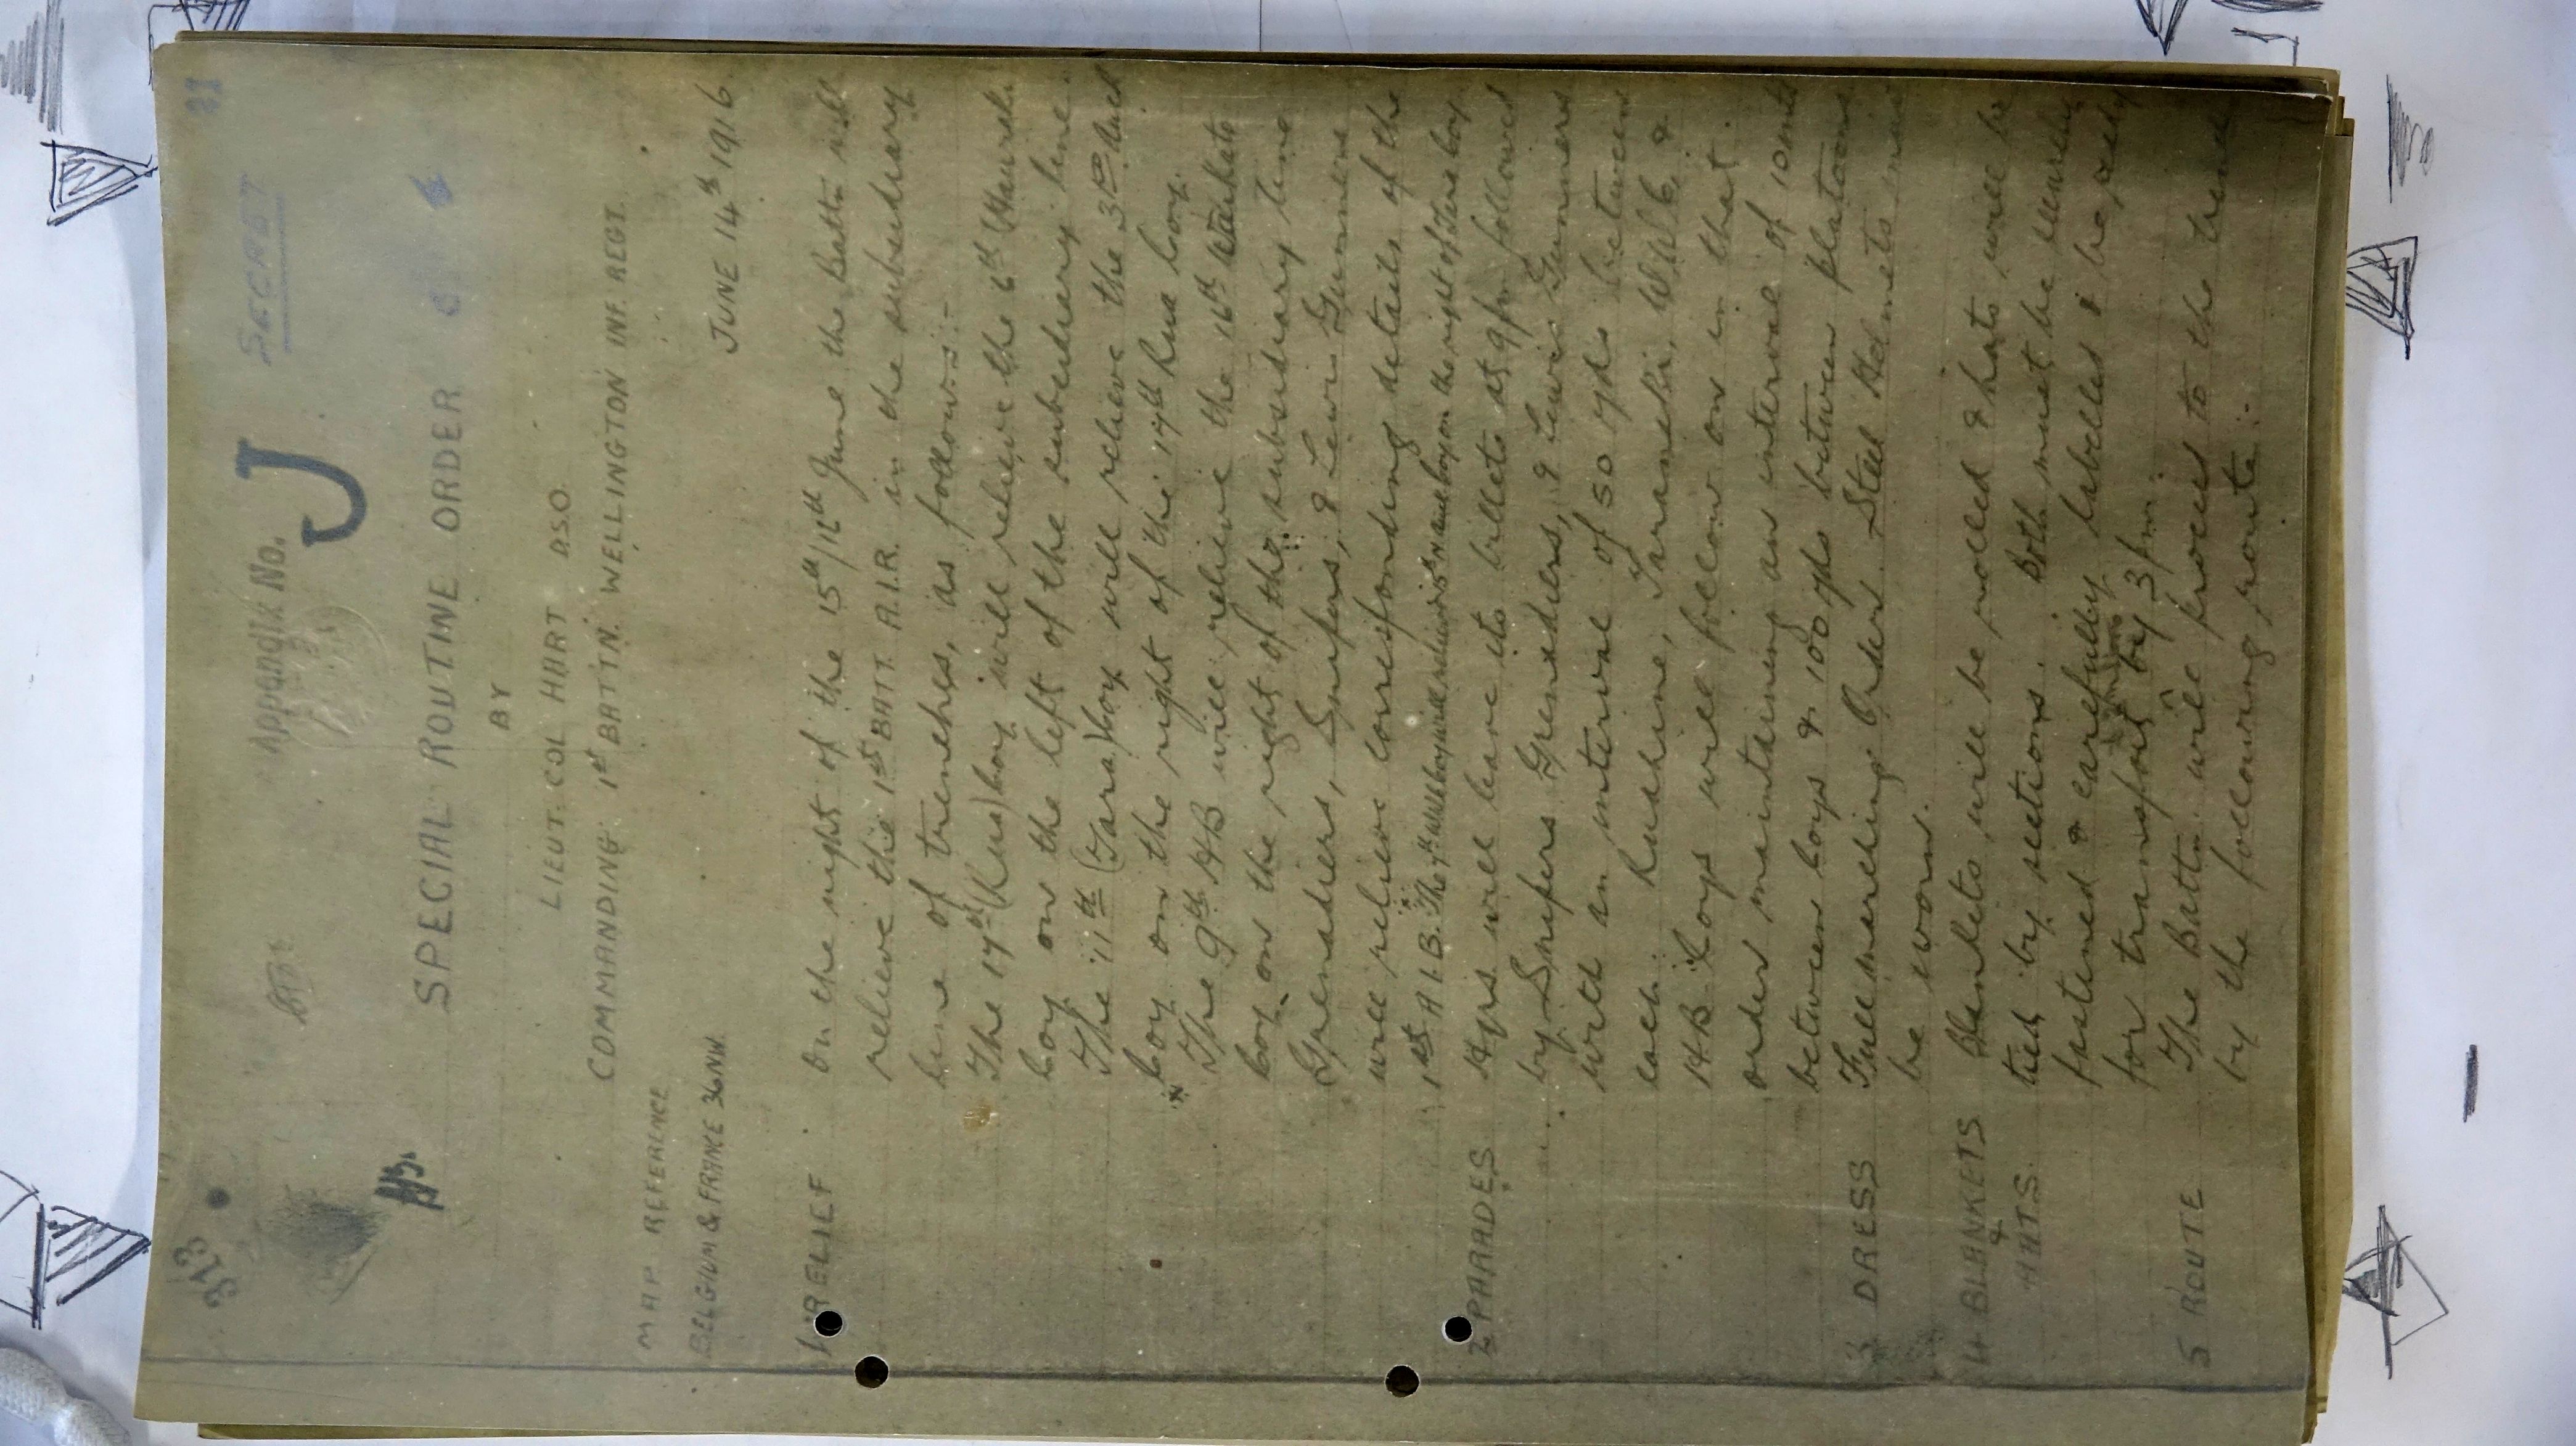 313
31
Appendix No. J
SECRET
SPECIAL ROUTINE ORDER
BY
LIEUT. COL HART D.S.O.
COMMANDING 1st BATTN. WELLINGTON INF. REGT.
MAP REFERENCE
BELGIUM & FRANCE 36NW.
JUNE 14th 1916
1. RELIEF On the night of the 15th/16th June the Battn will
relieve the 1st BATT A.I.R. in the subsidiary
line of trenches, as follows:-
The 17th (Rua) Coy will relieve the 6th (Hauraki
Coy on the left of the subsidiary line.
The 11th (Tara) Coy will relieve the 3rd Auck
Coy on the right of the 17th Rua Coy.
* The 9th HB will relieve the 16th Waikato
Coy on the right of the subsidiary line
Grenadiers, Snipers, & Lewis Gunners
will relieve corresponding details of the
1st A I B. * The 7th WWC Coy will relieve 15th N Auck Coy on the right of Tara Coy.
2 PARADES Hqrs will leave its billets at 9 pm followed
by Snipers Grenadiers, & Lewis Gunners
with an interval of 50 yds between
each. Ruahine, Taranaki, WWC, &
HB Coys will follow on in that
order maintaining an interval of 10 mts
between Coys & 100 yds between platoons.
3 DRESS Full marching Order. Steel Helmets
be worn.
4 BLANKETS Blankets will be rolled & hats will be
& HATS. tied by sections. Both must be securely
fastened & carefully labelled & be ready
for transport by 3 pm.
5 ROUTE The Battn. will proceed to the
by the following route:-